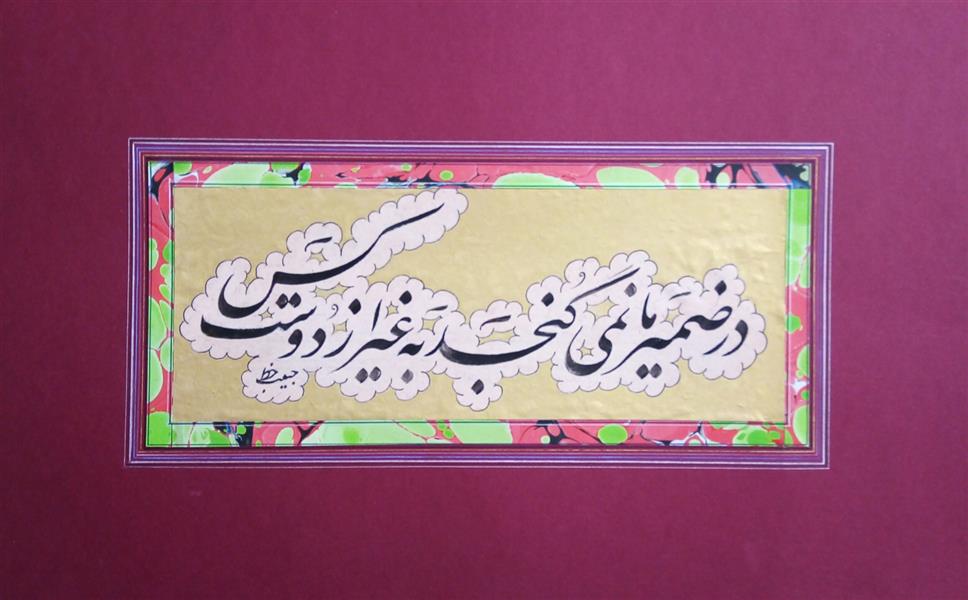 در ضمیر ما نمی گنجد به غیر از دوست کس